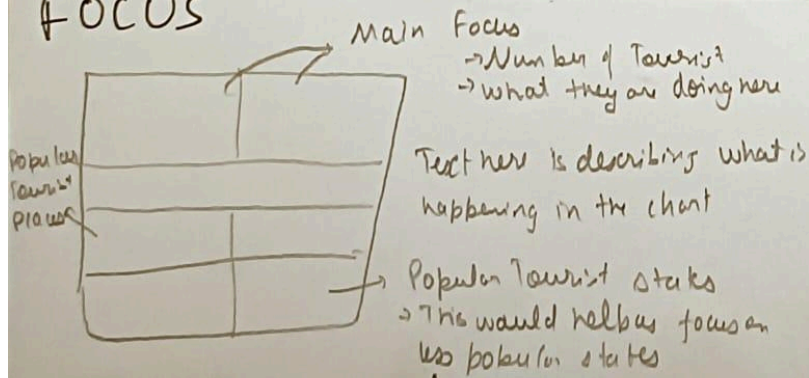 FOCUS
Main Focus
→ Number of Tourist
→ what they are doing here
Popular
Tourist
Places
Text here is describing what is
happening in the chart
Popular Tourist states
→ This would help us focus on
less popular states